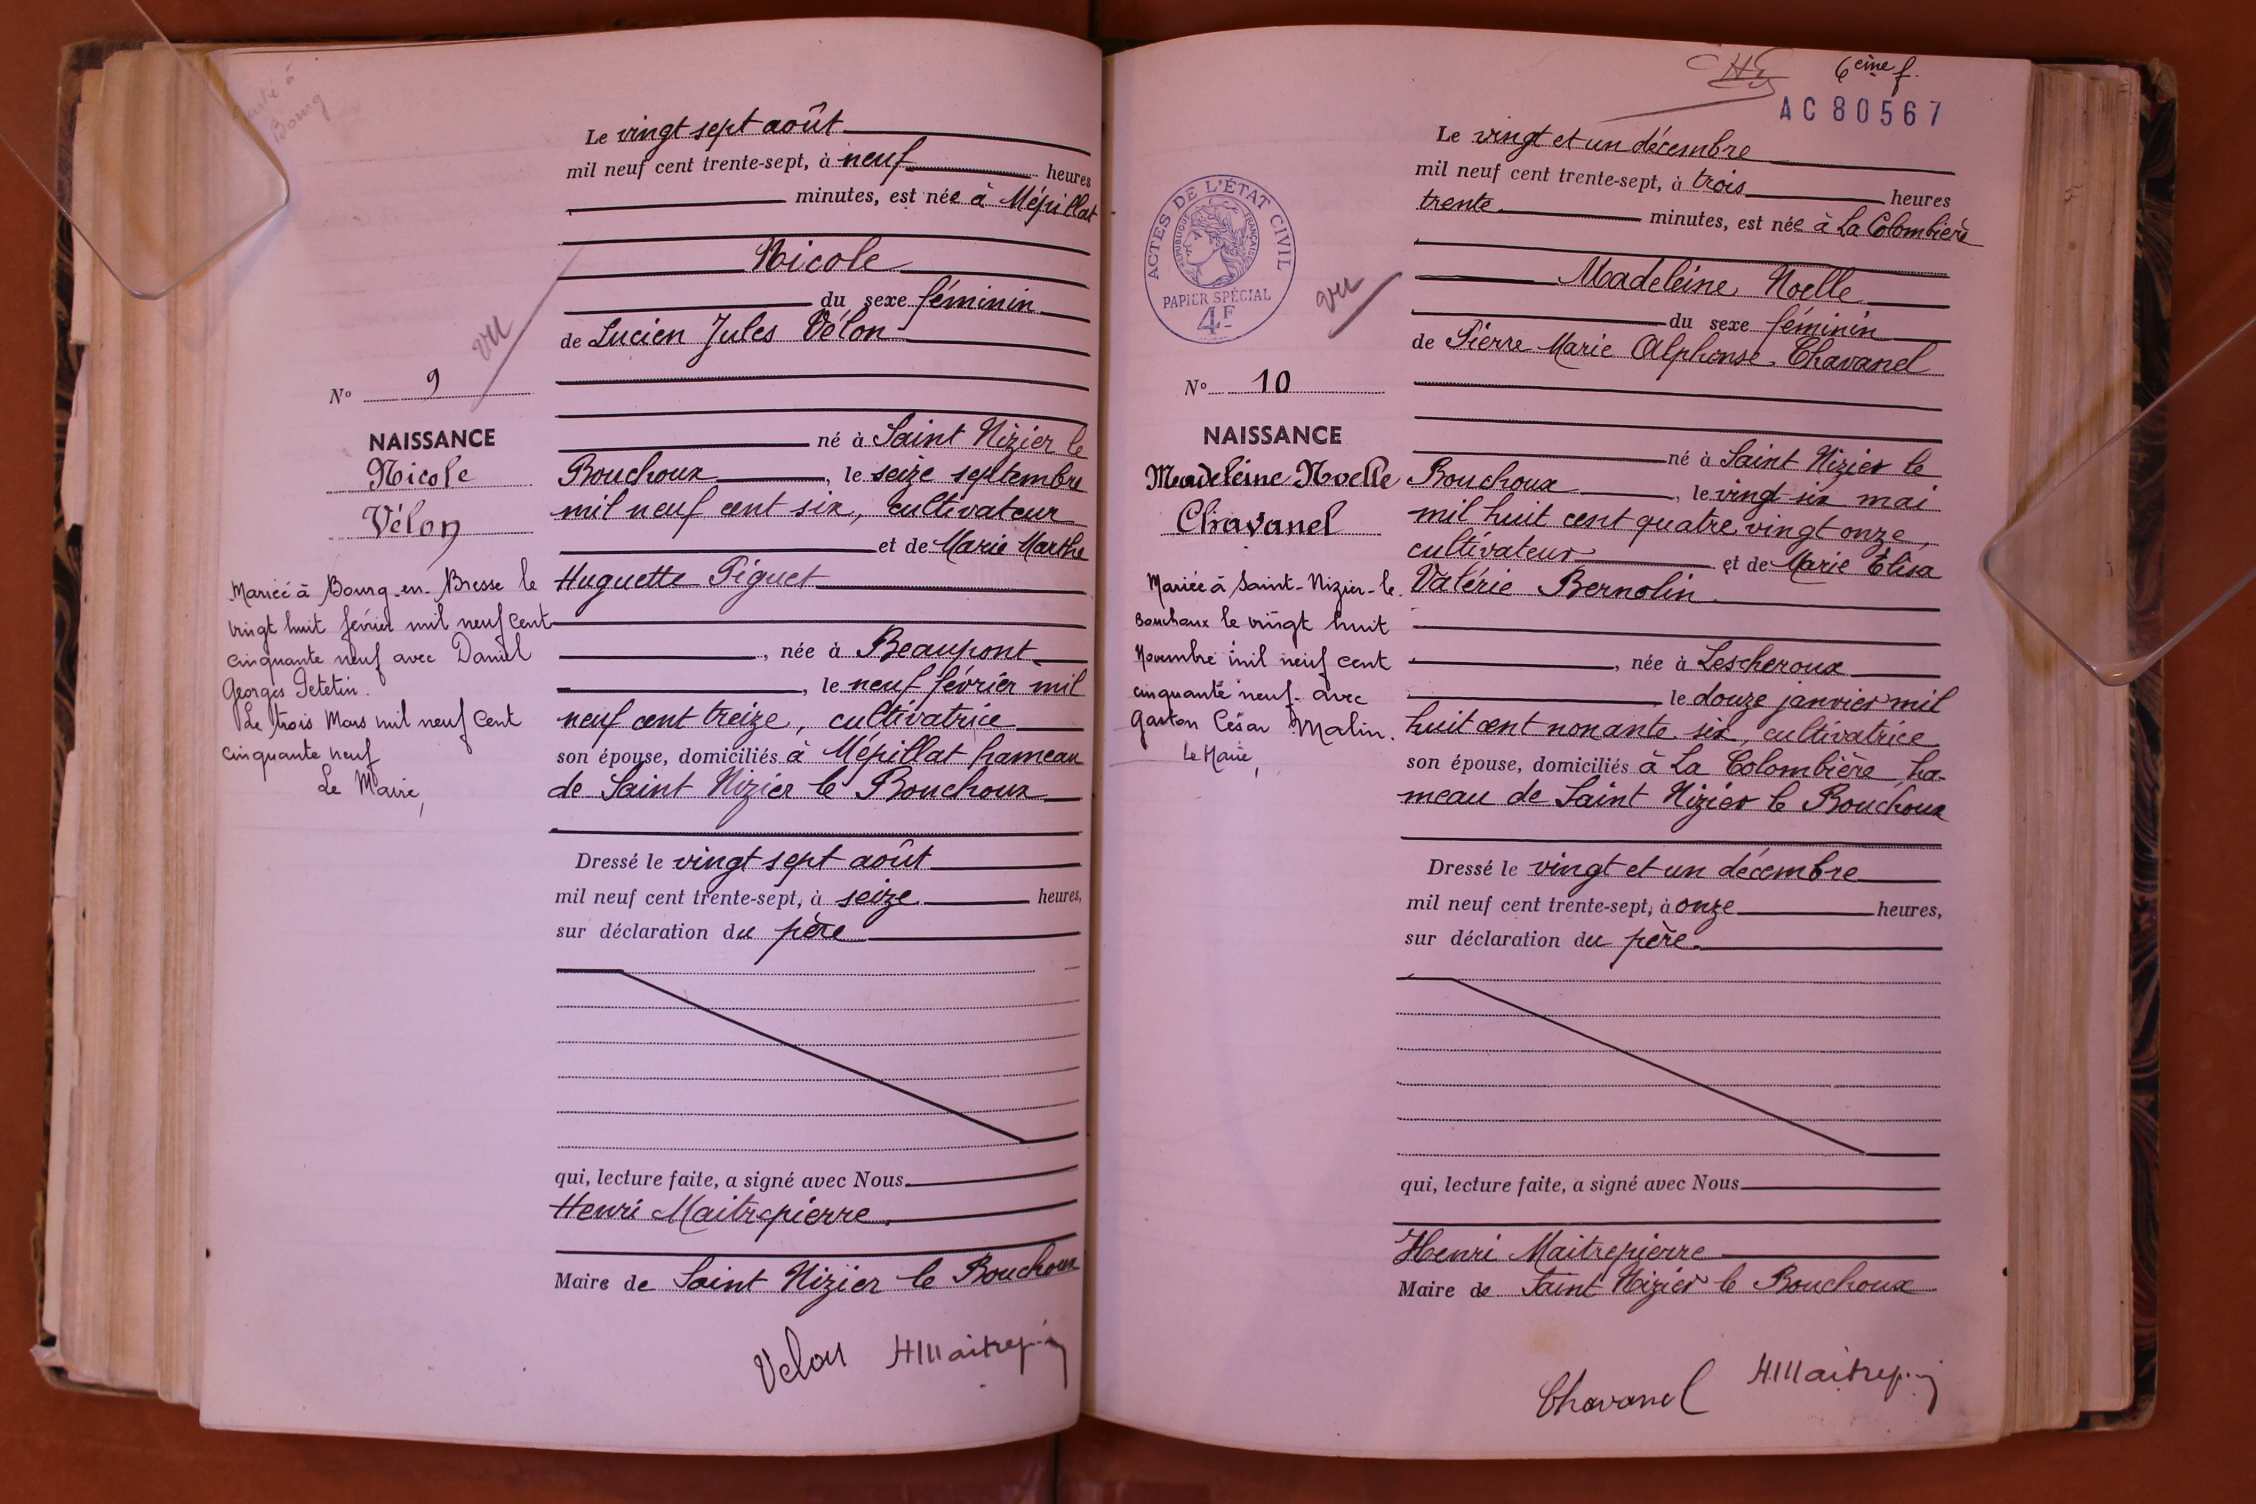 Bourg
Le vingt sept août
mil neuf cent trente-sept, à neuf heures
minutes, est née à Mépillat
Nicole
du sexe féminin
vu
de Lucien Jules Vélon
N° 9
né à Saint Nizier le
NAISSANCE
Nicole
Vélon
Bouchoux, le seize septembre
mil neuf cent six, cultivateur
et de Marie Marthe
Huguette Piguet
Mariée à Bourg-en-Bresse le
vingt huit février mil neuf cent
cinquante neuf avec Daniel
Georges Petetin.
Le trois Mars mil neuf cent
cinquante neuf
Le Maire,
née à Beaupont
, le neuf février mil
neuf cent treize, cultivatrice
son épouse, domiciliés à Mépillat hameau
de Saint Nizier le Bouchoux
Dressé le vingt sept août
mil neuf cent trente-sept, à seize heures,
sur déclaration du père
qui, lecture faite, a signé avec Nous
Henri Maitrepierre
Maire de Saint Nizier le Bouchoux
Velon HMaitrepi
6ème f.
AC 80567
Le vingt et un décembre
mil neuf cent trente-sept, à trois heures
trente minutes, est née à La Colombière
ACTES DE L'ÉTAT CIVIL
RÉPUBLIQUE FRANÇAISE
PAPIER SPÉCIAL
4F
vu
Madeleine Noelle
du sexe féminin
de Pierre Marie Alphonse Chavanel
N° 10
NAISSANCE
Madeleine Noelle
Chavanel
né à Saint Nizier le
Bouchoux, le vingt six mai
mil huit cent quatre vingt onze,
cultivateur et de Marie Elisa
Valérie Bernolin
Mariée à Saint-Nizier-le
Bouchoux le vingt huit
Novembre mil neuf cent
cinquante neuf avec
Gaston César Malin.
Le Maire,
, née à Lescheroux
le douze janvier mil
huit cent nonante six, cultivatrice
son épouse, domiciliés à La Colombière ha-
meau de Saint Nizier le Bouchoux
Dressé le vingt et un décembre
mil neuf cent trente-sept, à onze heures,
sur déclaration du père.
qui, lecture faite, a signé avec Nous
Henri Maitrepierre
Maire de Saint Nizier le Bouchoux
Chavanel HMaitrepi